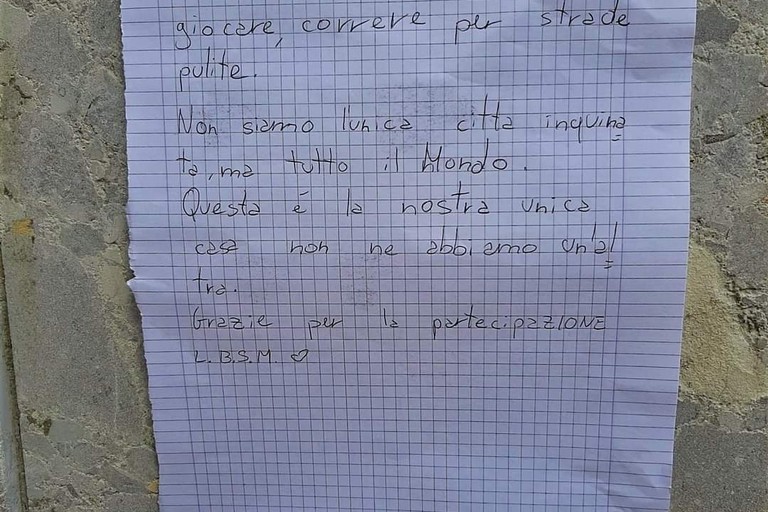 giocare, correre per strade
pulite.
Non siamo l'unica citta inquina
ta, ma tutto il Mondo.
Questa é la nostra unica
casa non ne abbiamo un'al
tra.
Grazie per la partecipaZIONE
L.B.S.M. ♡